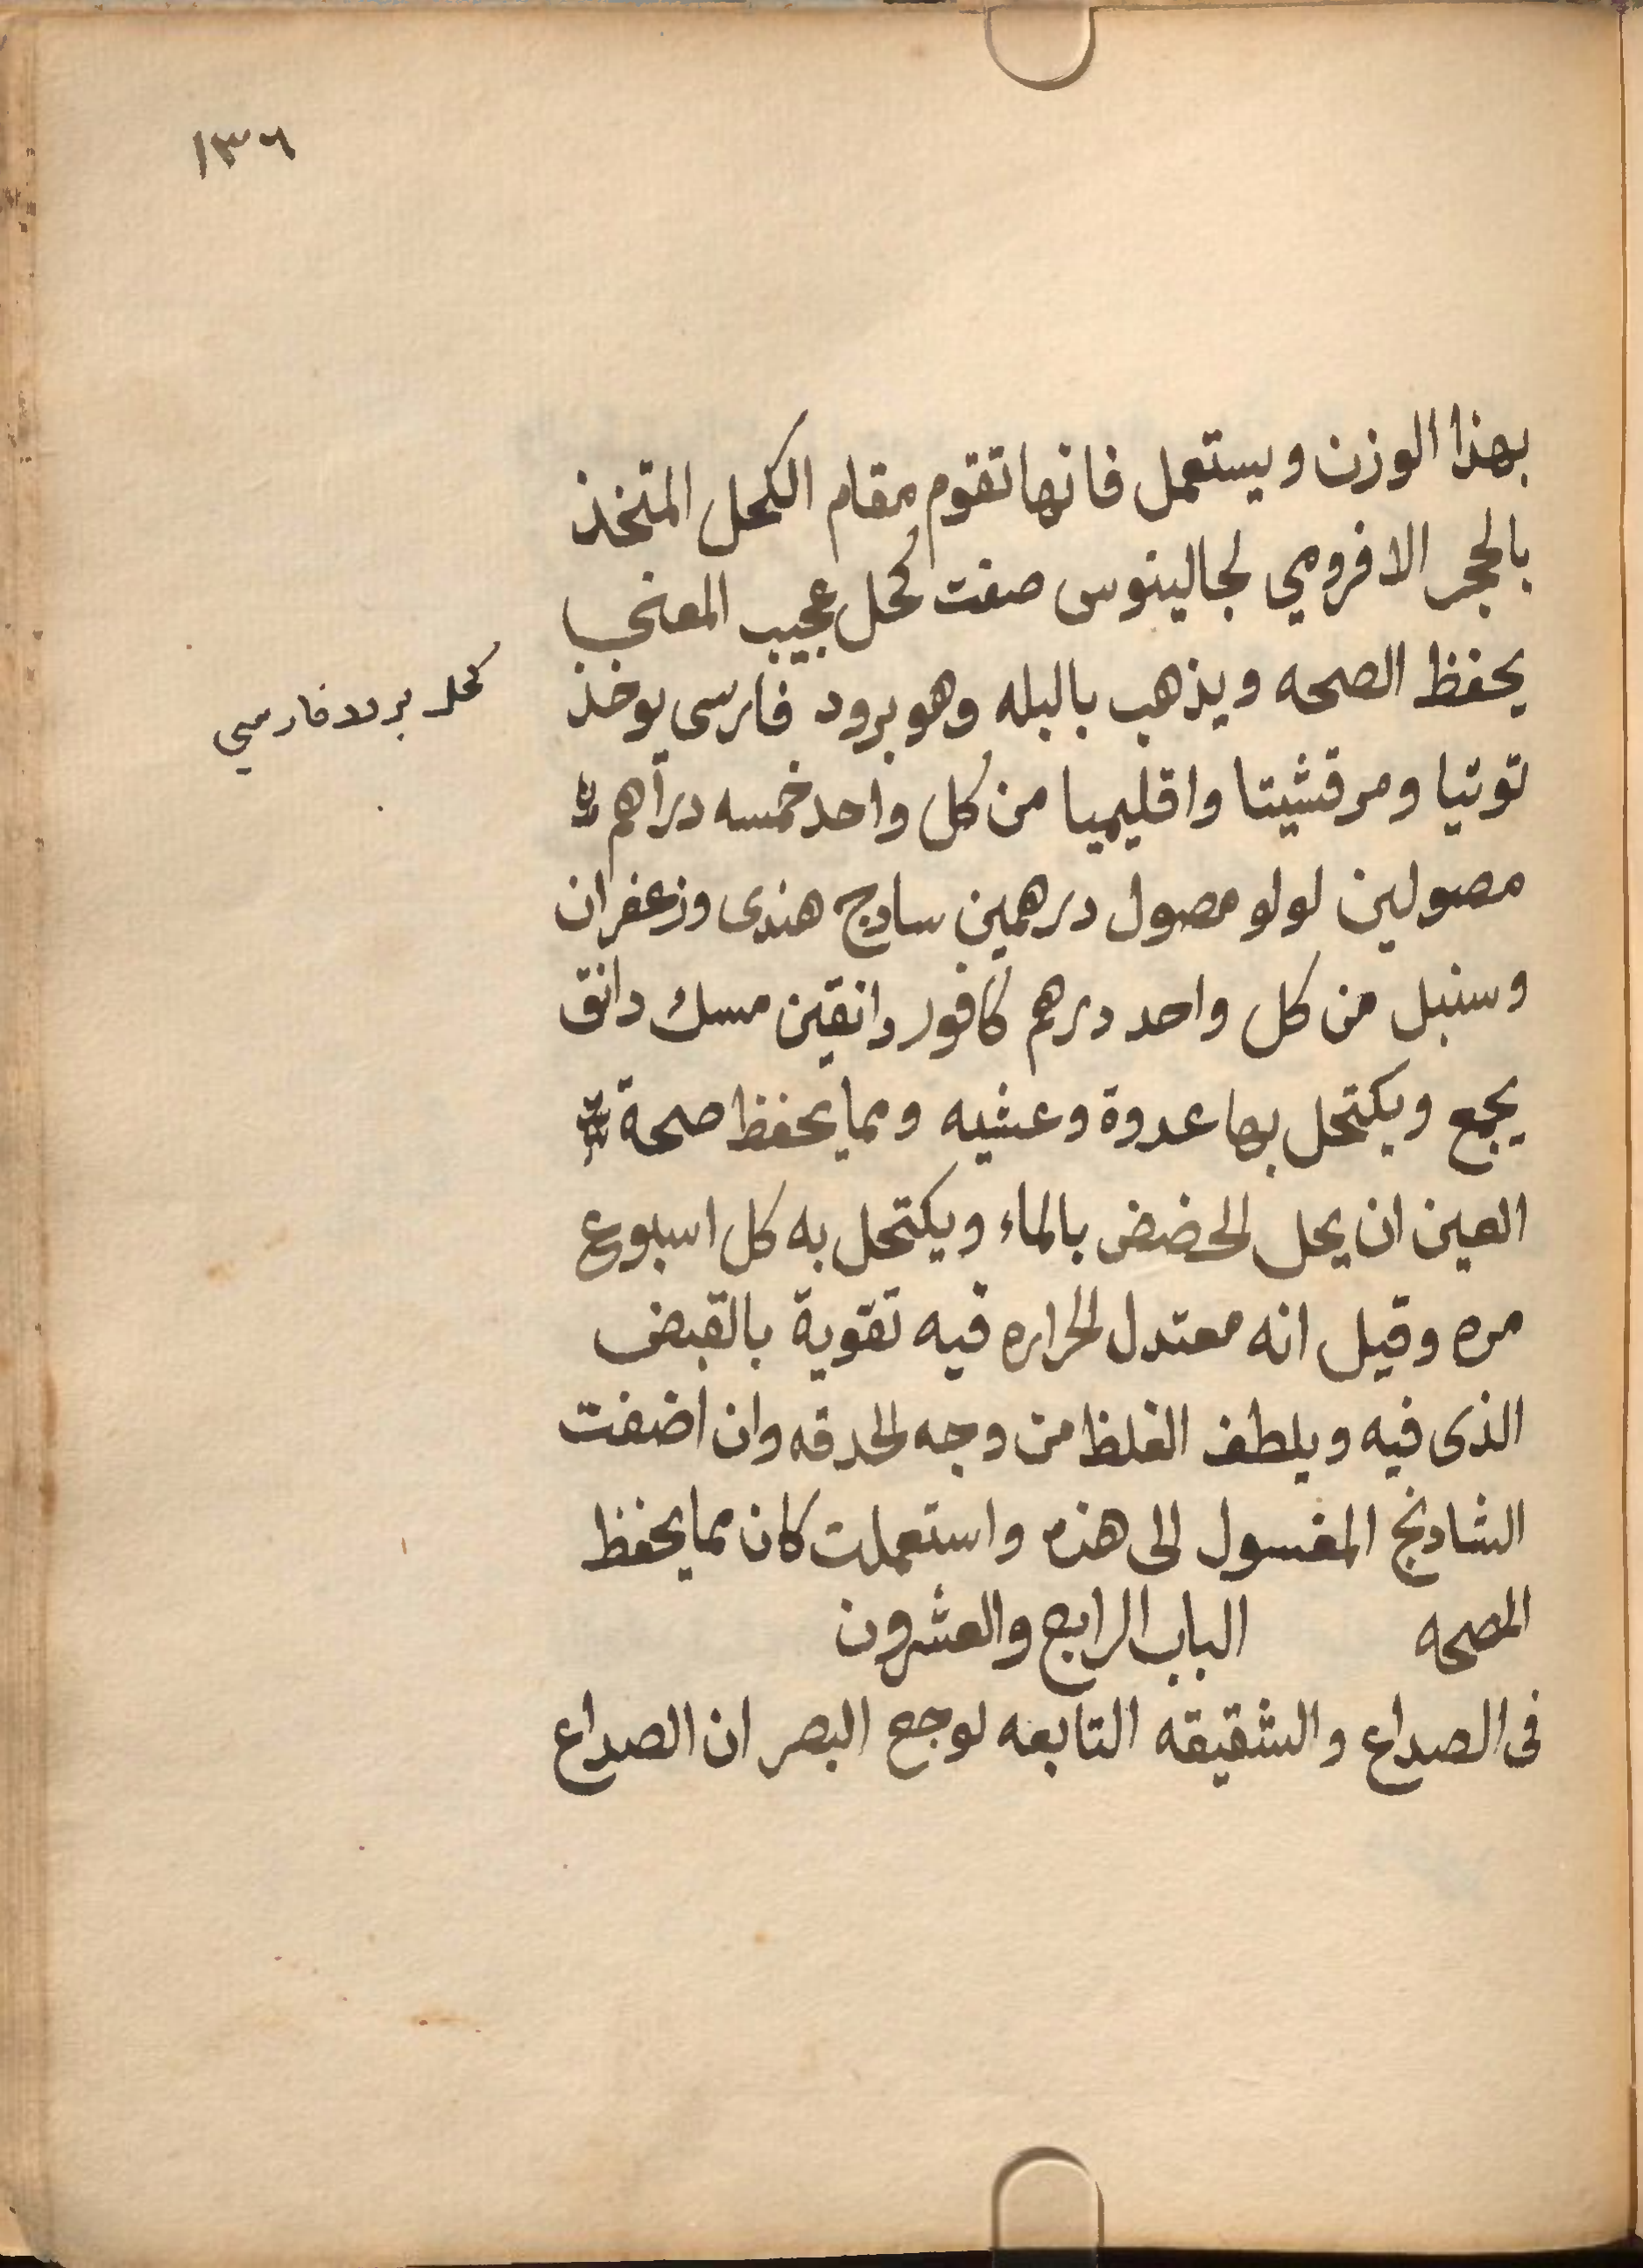 ١٣٦
بهذا الوزن ويستعمل فانها تقوم مقام الكحل المتخذ
بالحجر الافرومي لجالينوس صفت كحل عجيب المعنى
يحفظ الصحه ويذهب بالبله وهو برود فارسى يوخذ
كحل برود فارسي
توتيا ومرقشيتا واقليميا من كل واحد خمسه دراهم
مصولين لولو مصول درهمين سادج هندى وزعفران
وسنبل من كل واحد درهم كافور دانقين مسك دانق
يجمع ويكتحل بها عدوة وعشيه ومما يحفظ صحة
العين ان يحل الحضض بالماء ويكتحل به كل اسبوع
مره وقيل انه معتدل الحراره فيه تقوية بالقبض
الذى فيه ويلطف الغلظ من وجه الحدقه وان اضفت
الشادنج المغسول الى هذه واستعملت كان مما يحفظ
الصحه الباب الرابع والعشرون
فى الصداع والشقيقه التابعه لوجع البصر ان الصداع